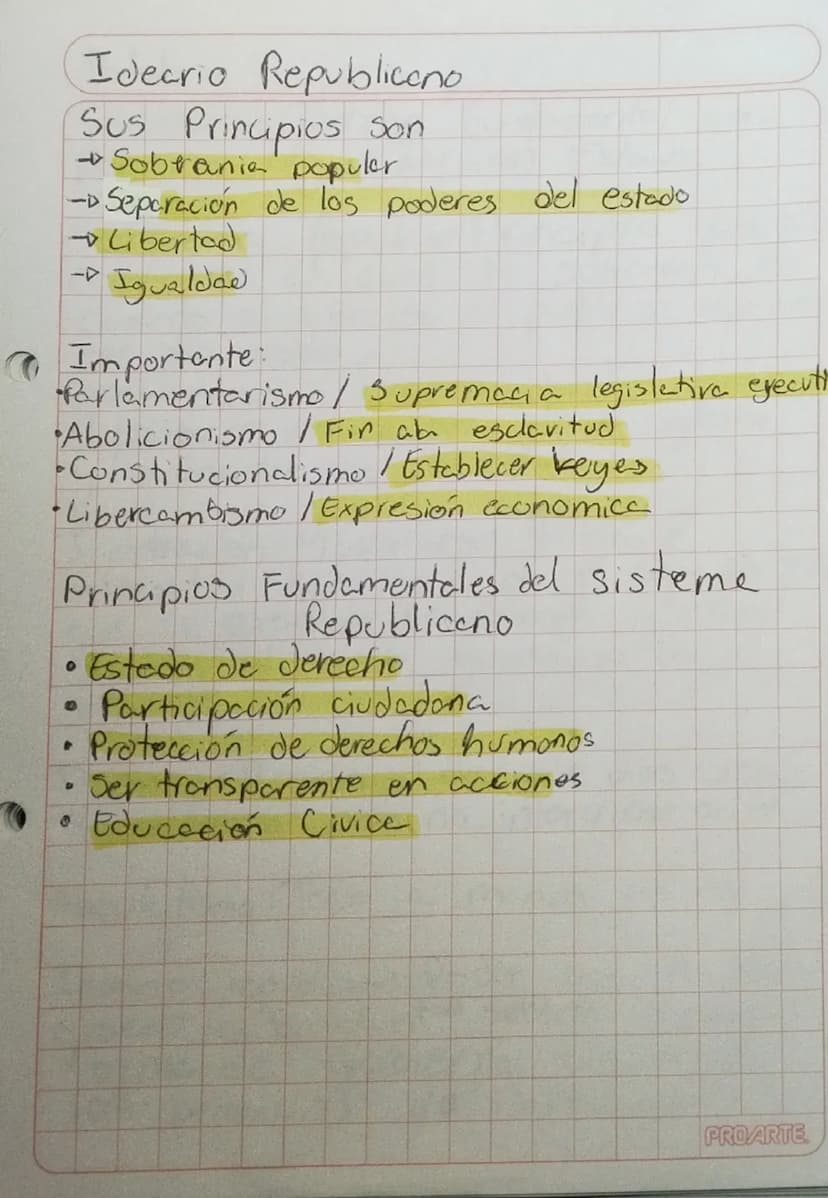 Ideario Republicano
Sus Principios son
→ Sobrania popular
→ Separación de los poderes del estado
→ Libertad
→ Igualdad
Importante:
•Parlamentarismo / Supremacia legislativa ejecuti
•Abolicionismo / Fin a la esclavitud
•Constitucionalismo / Establecer leyes
•Libercambismo / Expresión economica
Principios Fundamentales del sistema
Republicano
• Estado de derecho
• Participación ciudadana
• Protección de derechos humanos
• Ser transparente en acciones
• Educación Civica
PROARTE